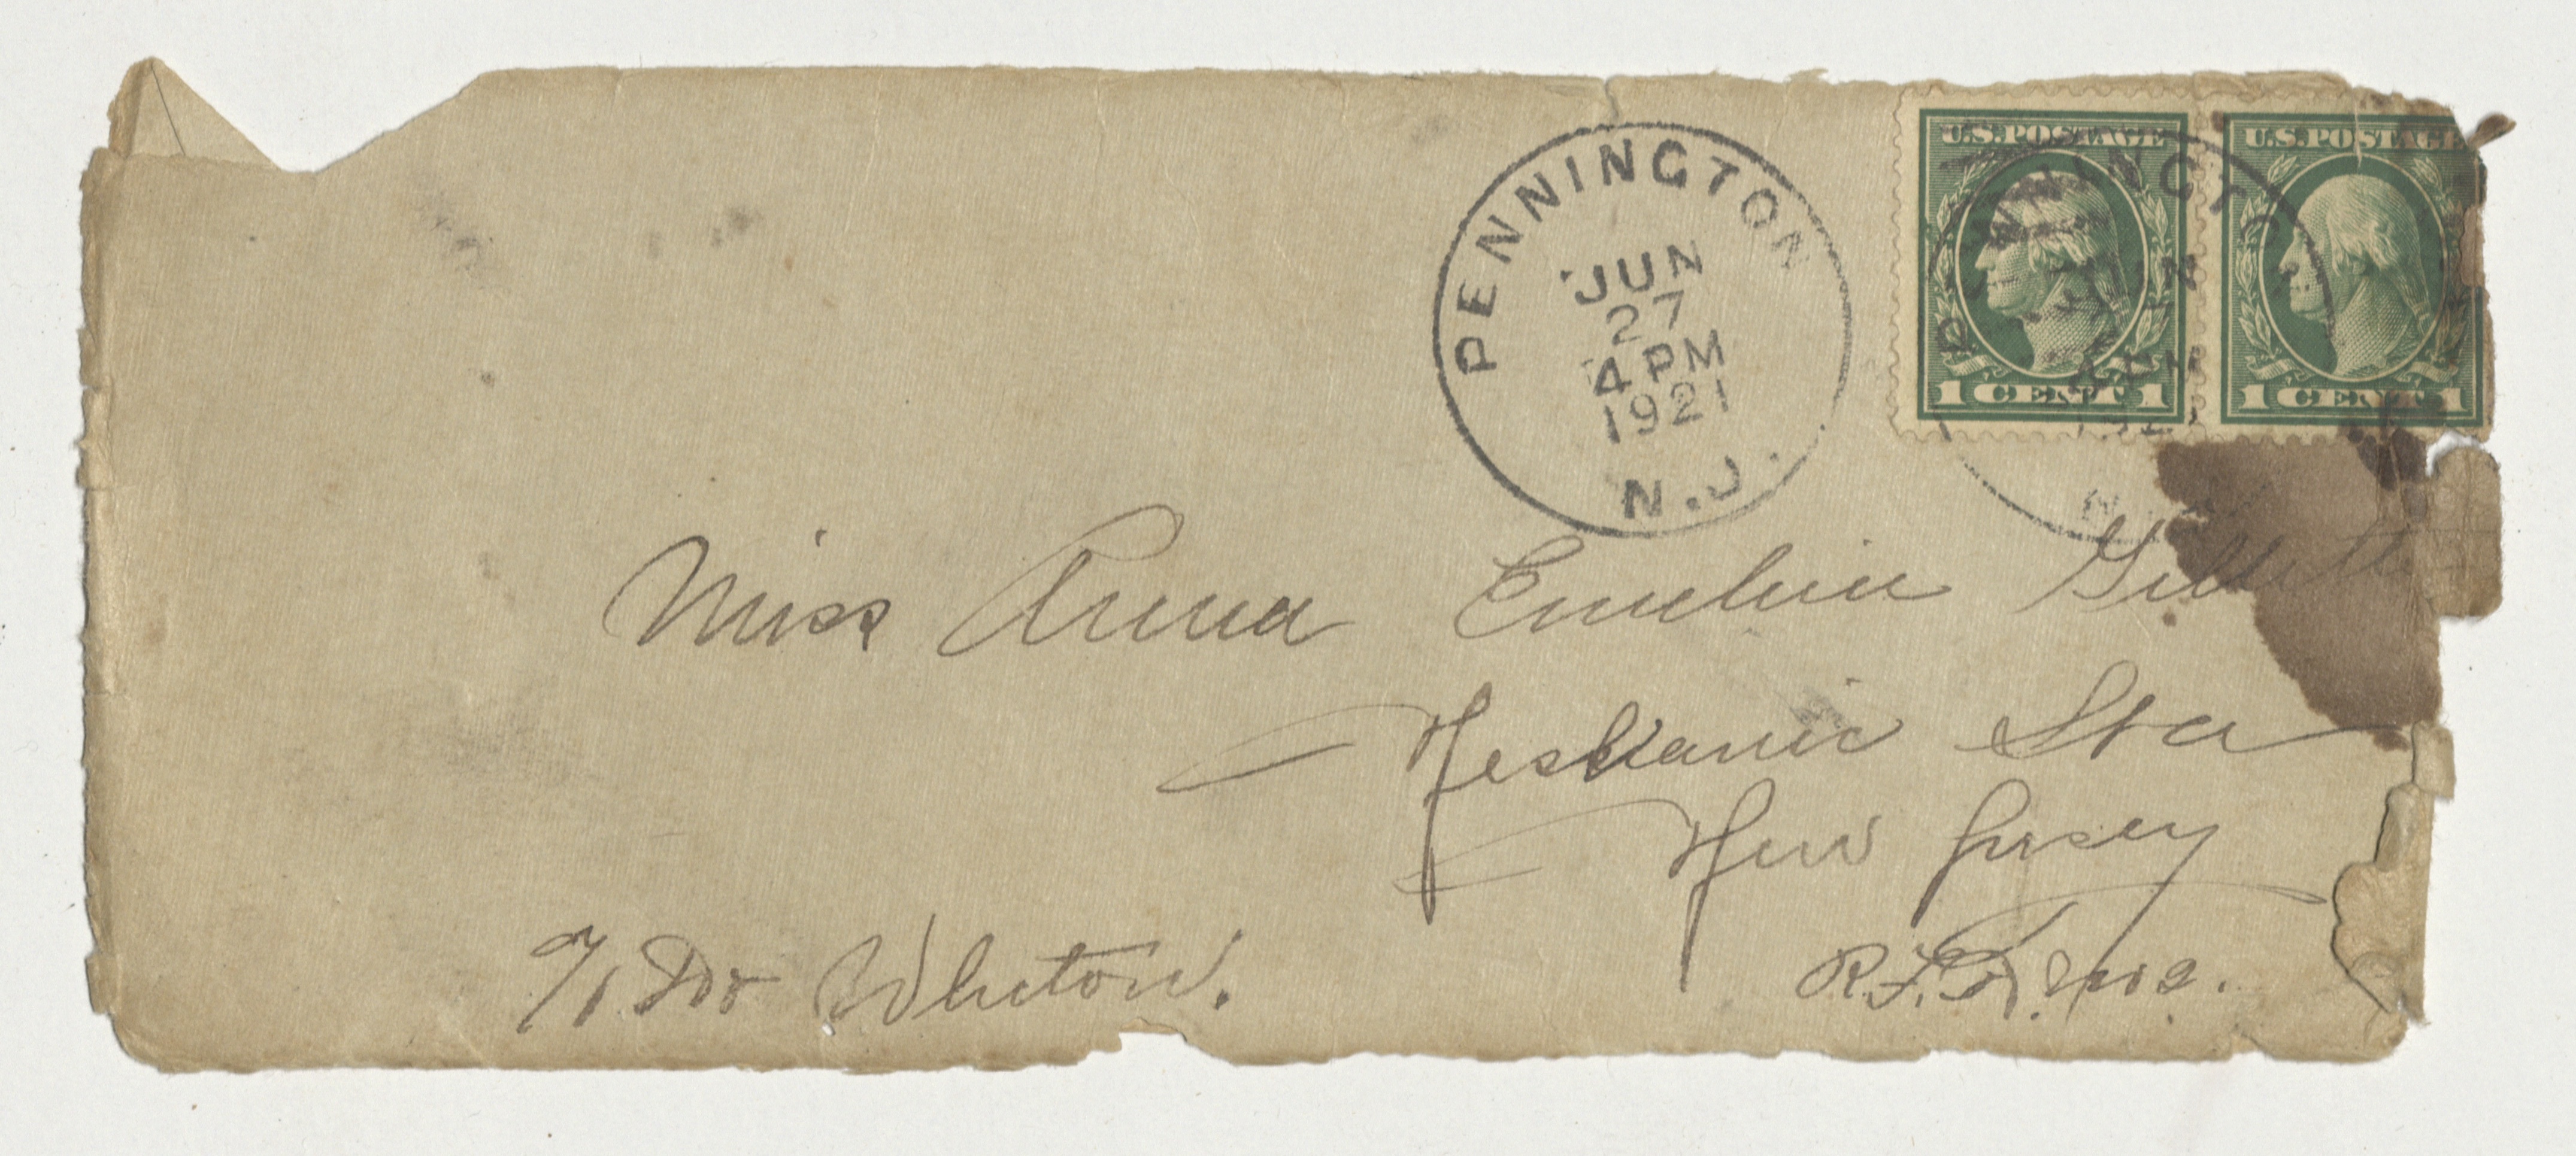 PENNINGTON
JUN
27
4 PM
1921
N.J.
U.S. POSTAGE
1 CENT 1
U.S. POSTAGE
1 CENT 1
Miss Anna Emelin Gillett
Neshanic Sta
New Jersey
R.F.D. No 2.
c/o Dr